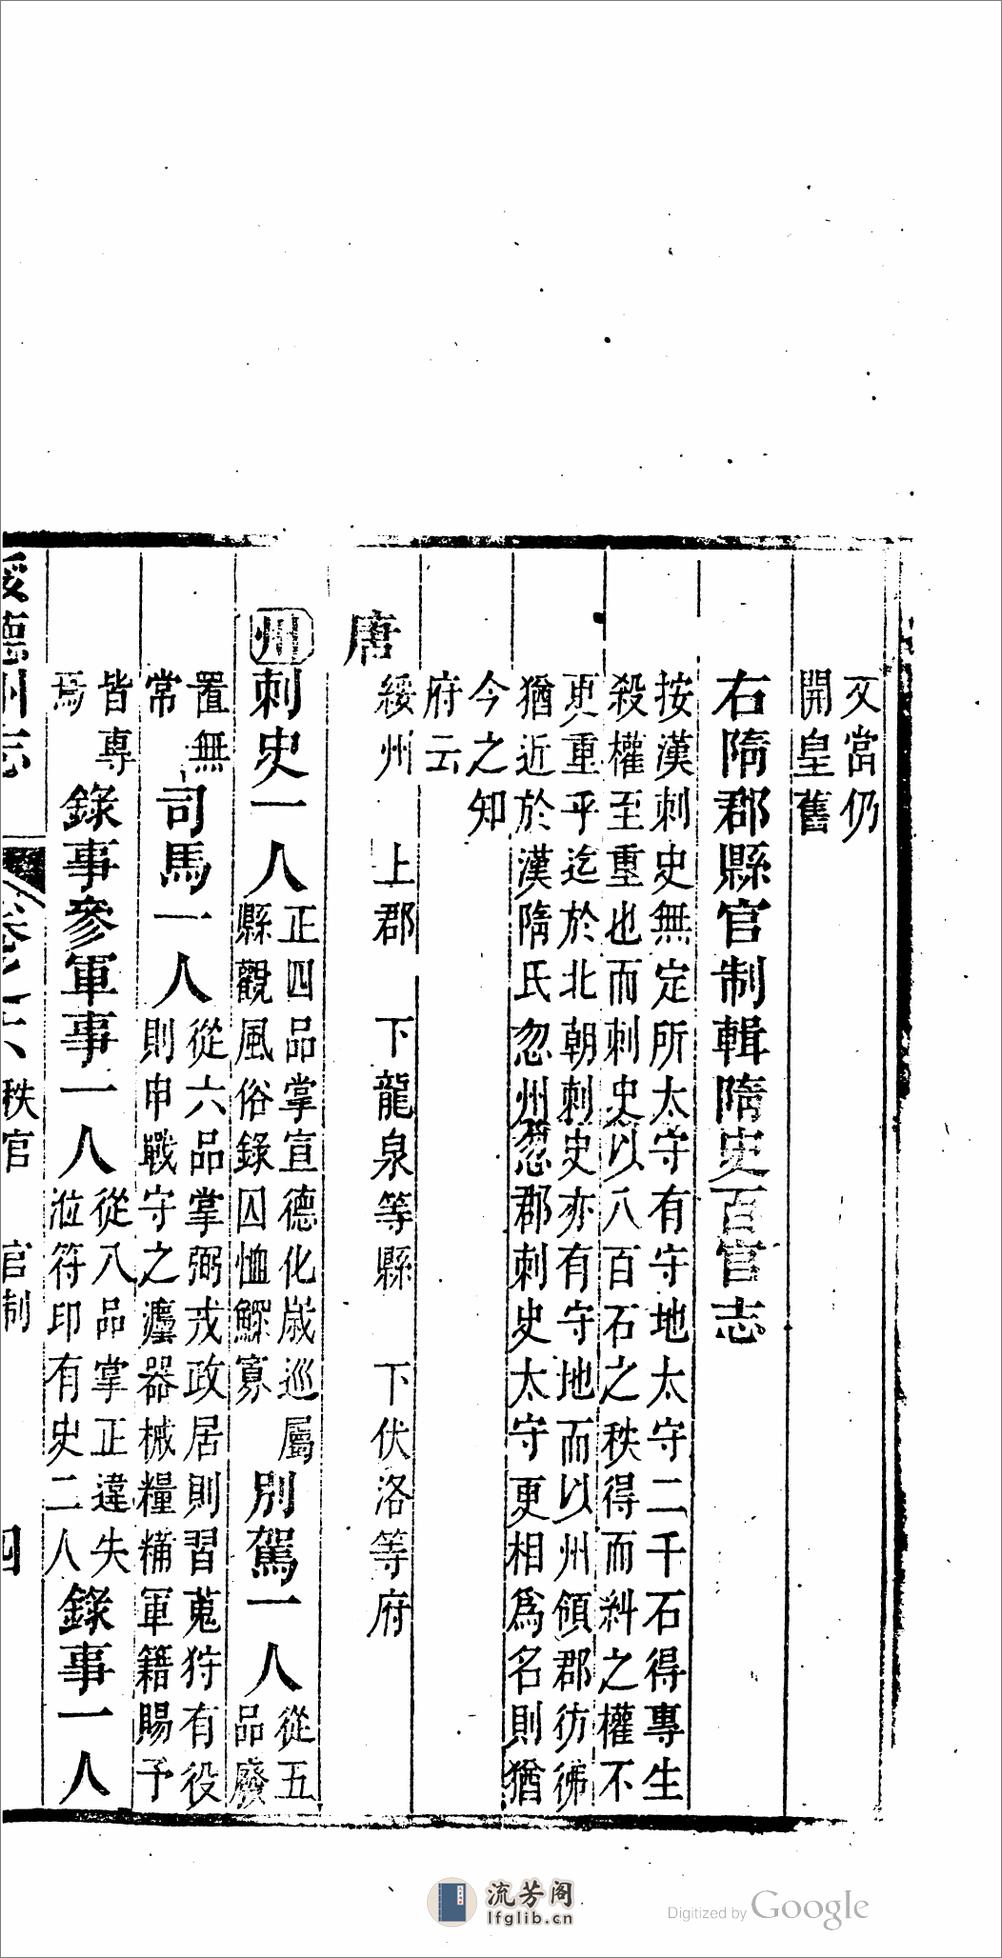 又當仍
開皇舊
右隋郡縣官制輯隋史百官志
按漢刺史無定所太守有守地太守二千石得專生
殺權至重也而刺史以八百石之秩得而糾之權不
更重乎迄於北朝刺史亦有守地而以州領郡彷彿
猶近於漢隋氏忽州忽郡刺史太守更相爲名則猶
今之知
府云
唐
綏州 上郡 下龍泉等縣 下伏洛等府
州刺史一人正四品掌宣德化嵗巡屬
縣觀風俗錄囚恤鰥寡別駕一人從五
品廢
置無
常司馬一人從六品掌弼戎政居則習蒐狩有役
則申戰守之灋器械糧糒軍籍賜予
皆專
焉錄事參軍事一人從八品掌正違失
涖符印有史二人錄事一人
綏德州志 卷之六 秩官 官制 四
流芳阁
lfglib.cn
Digitized by Google